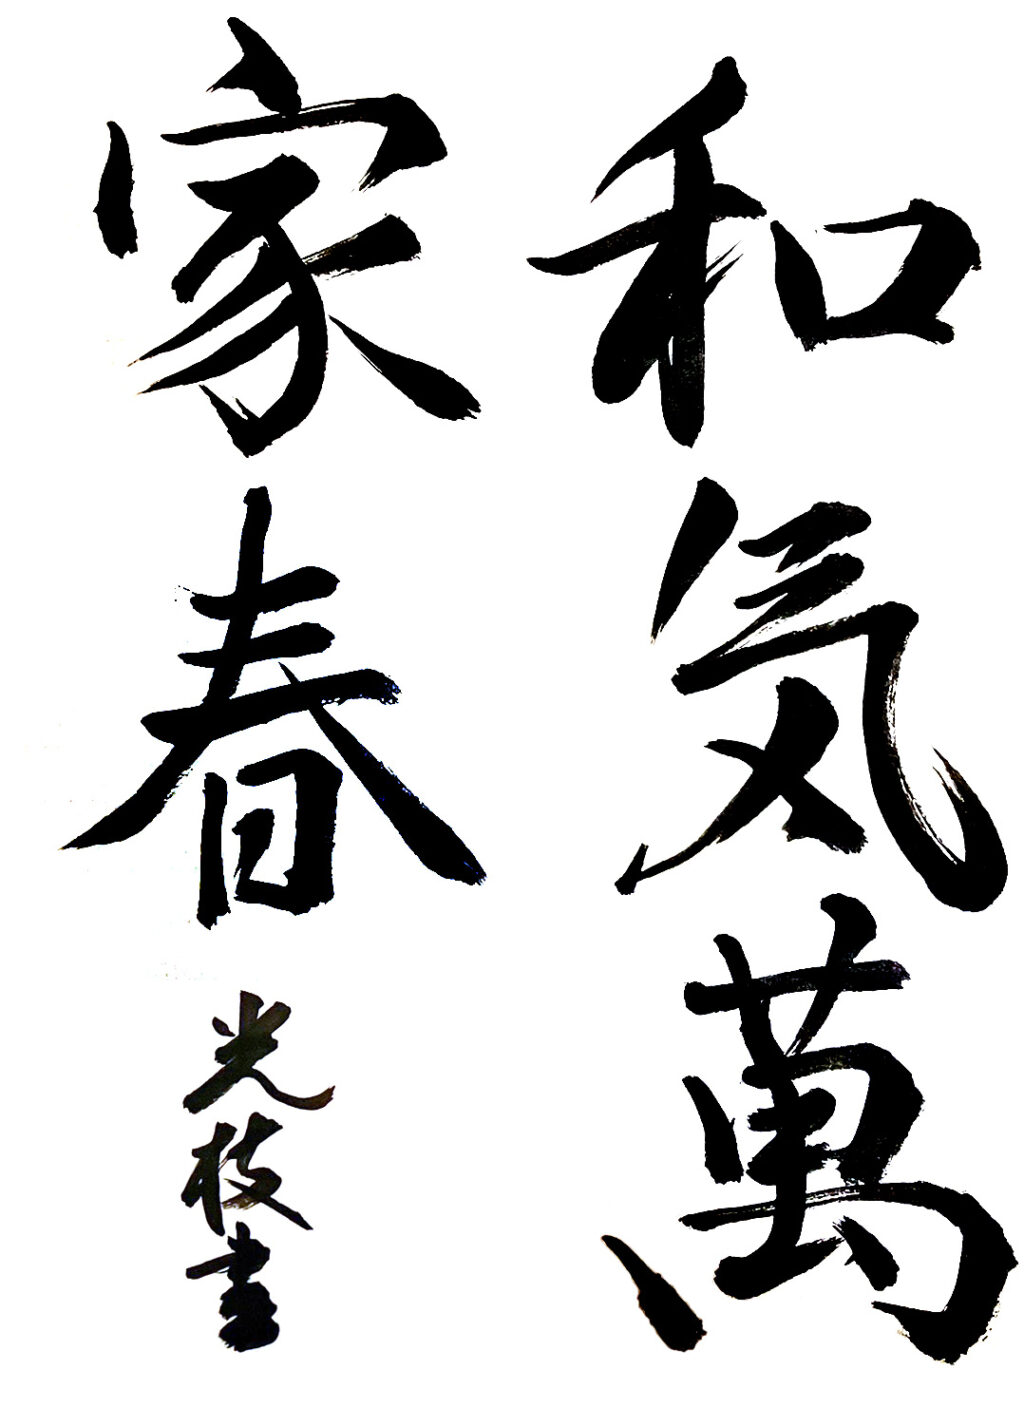 和気萬
家春
光枝書